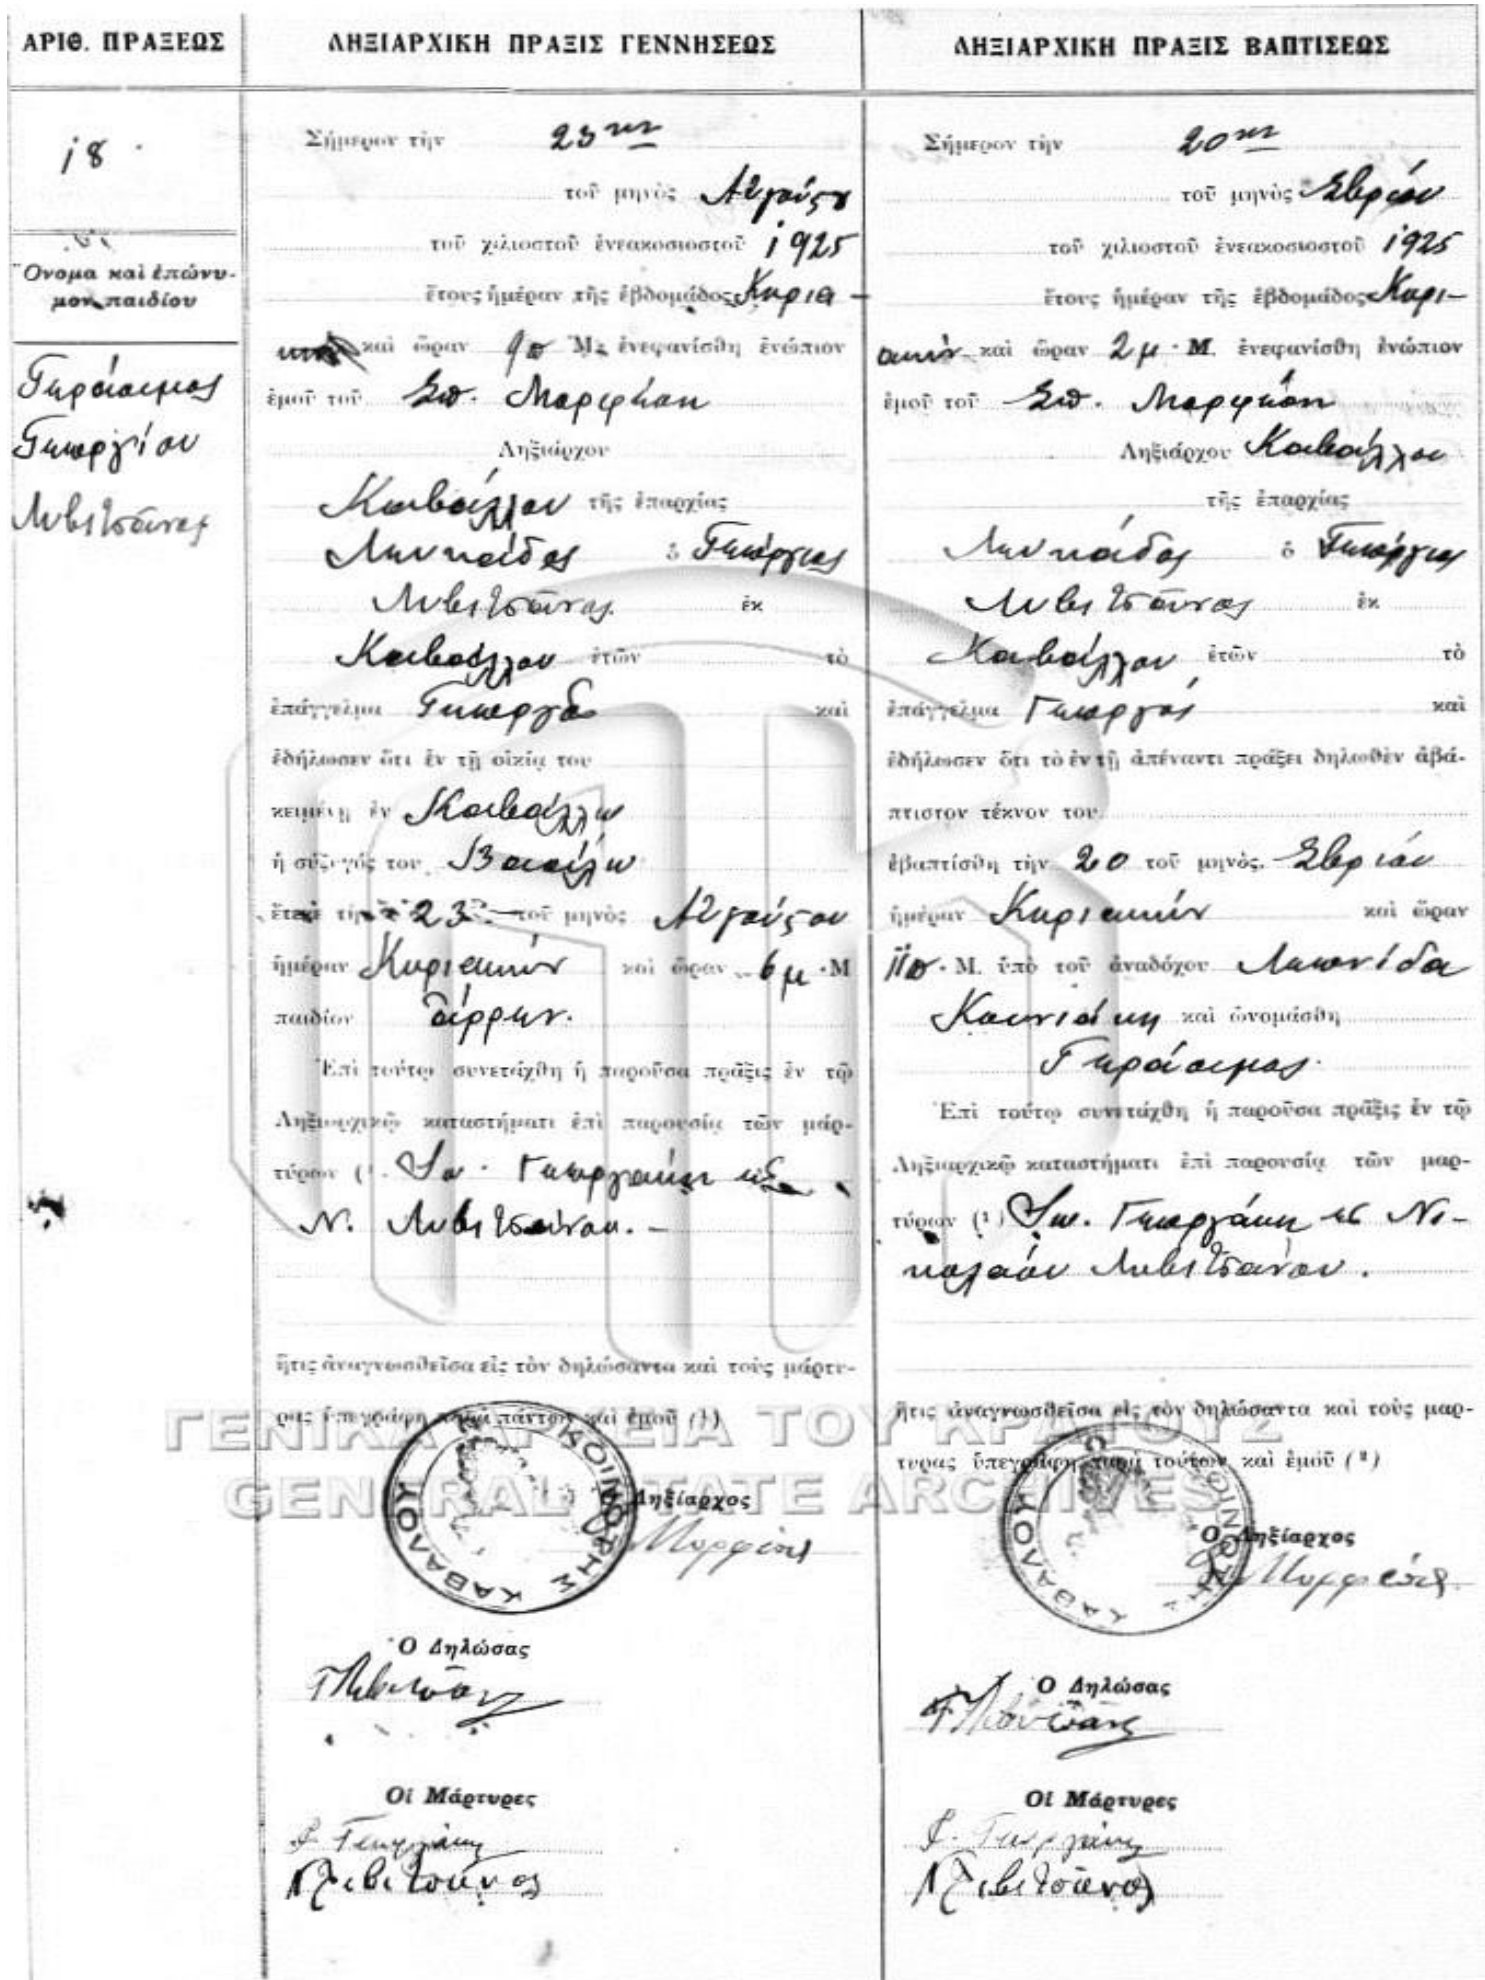 ΑΡΙΘ. ΠΡΑΞΕΩΣ
18
Ὄνομα καὶ ἐπώνυ-
μον παιδίου
Γεράσιμος
Γεωργίου
Λιβιτσάνος
ΛΗΞΙΑΡΧΙΚΗ ΠΡΑΞΙΣ ΓΕΝΝΗΣΕΩΣ
Σήμερον τὴν 23ην
τοῦ μηνὸς Αὐγούστου
τοῦ χιλιοστοῦ ἐνεακοσιοστοῦ 1925
ἔτους ἡμέραν τῆς ἑβδομάδος Κυρια-
καὶ ὥραν 9π Μ. ἐνεφανίσθη ἐνώπιον
ἐμοῦ τοῦ Σπ. Μορφέση
Ληξιάρχου
Καβάλλου τῆς ἐπαρχίας
Λευκάδος ὁ Γεώργιος
Λιβιτσάνος ἐκ
Καβάλλου ἐτῶν τὸ
ἐπάγγελμα Γεωργὸς καὶ
ἐδήλωσεν ὅτι ἐν τῇ οἰκίᾳ του
κειμένῃ ἐν Καβάλλῳ
ἡ σύζυγός του Βασίλω
ἔτεκε τὴν 23 τοῦ μηνὸς Αὐγούστου
ἡμέραν Κυριακὴν καὶ ὥραν 6 μ.Μ
παιδίον ἄρρεν.
Ἐπὶ τούτῳ συνετάχθη ἡ παροῦσα πρᾶξις ἐν τῷ
Ληξιαρχικῷ καταστήματι ἐπὶ παρουσίᾳ τῶν μάρ-
τύρων (¹ Σπ. Γεωργάκη κὲ
Ν. Λιβιτσάνου.-
ἥτις ἀναγνωσθεῖσα εἰς τὸν δηλώσαντα καὶ τοὺς μάρτυ-
ρας ὑπεγράφη παρὰ πάντων καὶ ἐμοῦ (¹)
ΚΟΙΝΟΤΗΣ ΚΑΒΑΛΟΥ
Ὁ Ληξίαρχος
Ὁ Δηλώσας
Γ Λιβιτσάνος
Οἱ Μάρτυρες
Γεωργάκης
Ν Λιβιτσάνος
ΛΗΞΙΑΡΧΙΚΗ ΠΡΑΞΙΣ ΒΑΠΤΙΣΕΩΣ
Σήμερον τὴν 20ην
τοῦ μηνὸς Σβρίου
τοῦ χιλιοστοῦ ἐνεακοσιοστοῦ 1925
ἔτους ἡμέραν τῆς ἑβδομάδος Κυρι-
ακὴν καὶ ὥραν 2 μ.Μ. ἐνεφανίσθη ἐνώπιον
ἐμοῦ τοῦ Σπ. Μορφέση
Ληξιάρχου Καβάλλου
τῆς ἐπαρχίας
Λευκάδος ὁ Γεώργιος
Λιβιτσάνος ἐκ
Καβάλλου ἐτῶν τὸ
ἐπάγγελμα Γεωργὸς καὶ
ἐδήλωσεν ὅτι τὸ ἐν τῇ ἀπέναντι πράξει δηλωθὲν ἀβά-
πτιστον τέκνον του
ἐβαπτίσθη τὴν 20 τοῦ μηνὸς Σβρίου
ἡμέραν Κυριακὴν καὶ ὥραν
11π.Μ. ὑπὸ τοῦ ἀναδόχου Λεωνίδα
καὶ ὠνομάσθη
Γεράσιμος.
Ἐπὶ τούτῳ συνετάχθη ἡ παροῦσα πρᾶξις ἐν τῷ
Ληξιαρχικῷ καταστήματι ἐπὶ παρουσίᾳ τῶν μαρ-
τύρων (¹) Σπ. Γεωργάκη κὲ Νι-
κολάου Λιβιτσάνου.
ἥτις ἀναγνωσθεῖσα εἰς τὸν δηλώσαντα καὶ τοὺς μαρ-
τυρας ὑπεγράφη παρὰ τούτων καὶ ἐμοῦ (²)
ΚΟΙΝΟΤΗΣ ΚΑΒΑΛΟΥ
Ὁ Ληξίαρχος
Ὁ Δηλώσας
Γ Λιβιτσάνος
Οἱ Μάρτυρες
Γεωργάκης
Ν Λιβιτσάνος
ΓΕΝΙΚΑ ΑΡΧΕΙΑ ΤΟΥ ΚΡΑΤΟΥΣ
GENERAL STATE ARCHIVES